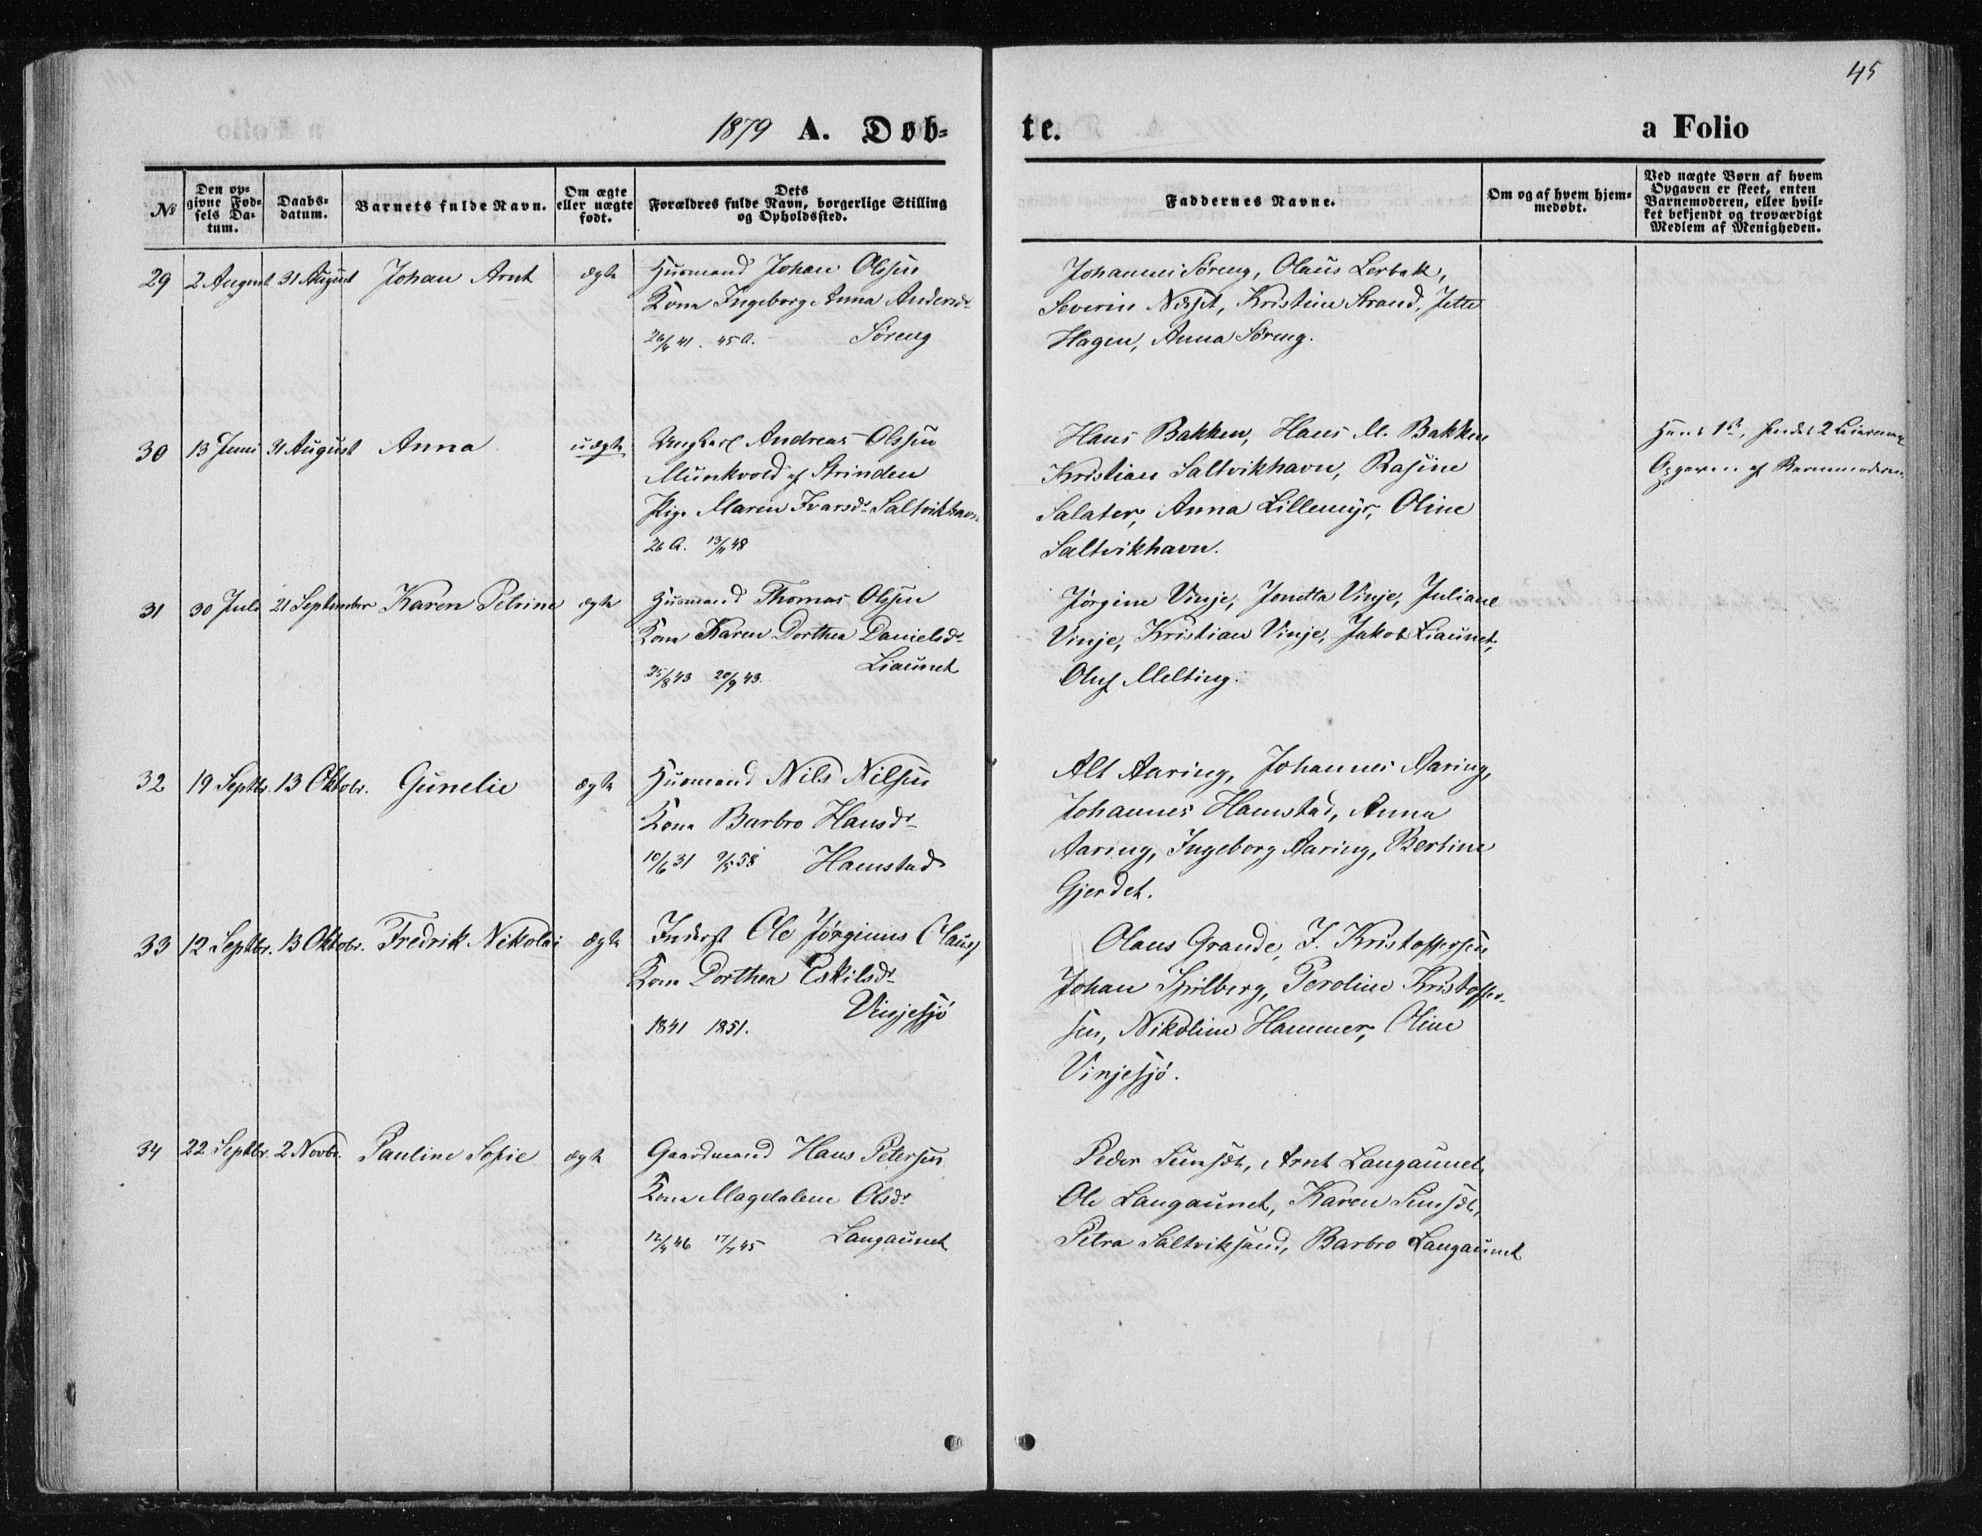 45
1879 A. Døb-
te.
a Folio
No
Den op-
givne Fød-
sels Da-
tum.
Daabs-
datum.
Barnets fulde Navn.
Om ægte
eller uægte
født.
Dets
Forældres fulde Navn, borgerlige Stilling
og Opholdssted.
Faddernes Navne.
Om og af hvem hjem-
medøbt.
Ved uægte Børn af hvem
Opgaven er skeet, enten
Barnemoderen, eller hvil-
ket bekjendt og troværdigt
Medlem af Menigheden.
29 2 August 31 August Johan Arnt ægte Husmand Johan Olssen
Kone Ingeborg Anna Andersdr
26/4 41. 45 A. Søreng
Johannes Søreng, Olaus Lerbak,
Severin Næset, Kristine Strand, Jette
Hagen, Anna Søreng.
30 13 Juni 31 August Anna uægte Ungkarl Andreas Olssen
Munkvold af Strinden
Pige Maren Ivarsdr Saltvikhavn
26 A. 13/11 48
Hans Bakken, Hans M. Bakken
Kristian Saltvikhavn, Rasine
Salater, Anna Lillemyr, Oline
Saltvikhavn.
Hans 1ste, hendes 2 Leiermaal
Opgaven af Barnemoderen
31 30 Juli 21 September Karen Petrine ægte Husmand Thomas Olssen
Kone Karen Dorthea Danielsdr
25/8 43 20/9 43. Liaunet
Jørgine Vinje, Jonetta Vinje, Juliane
Vinje, Kristian Vinje, Jakob Liaunet,
Oluf Melting.
32 19 Septbr. 13 Oktobr. Gunelie ægte Husmand Nils Nilsen
Kone Barbro Hansdr
10/6 31 9/5 58 Hamstad
Alt Aaring, Johannes Aaring,
Johannes Hamstad, Anna
Aaring, Ingeborg Aaring, Bertine
Gjerdet.
33 12 Septbr. 13 Oktobr. Fredrik Nikolai ægte Inderst Ole Jørginus Clauss
Kone Dorthea Eskilsdr
Vinjesjø
1841 1851.
Olaus Grande, J. Kristoffersen
Johan Spilberg, Peroline Kristoffer-
sen, Nikoline Hammer, Oline
Vinjesjø.
34 22 Septbr. 2 Novbr. Pauline Sofie ægte Gaardmand Hans Petersen
Kone Magdalene Olsdr
12/4 46 17/7 45 Langaunet
Peder, Arnt Langaunet,
Ole Langaunet, Karen
Petra Saltviksand, Barbro Langaunet